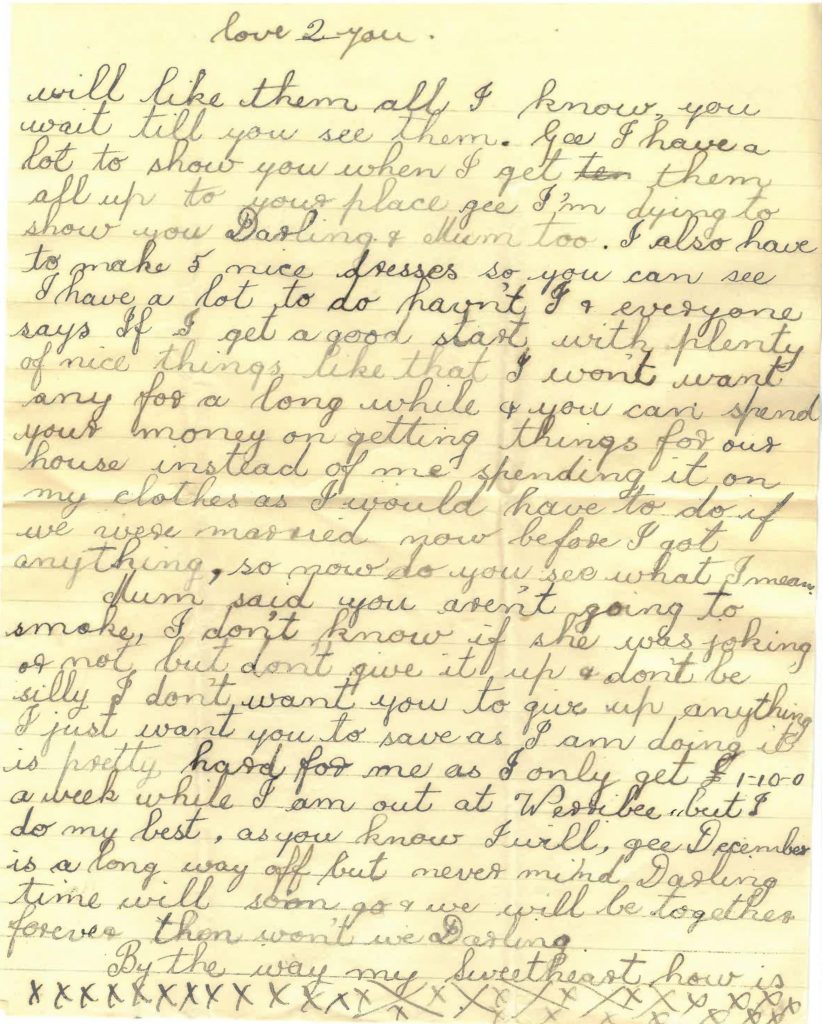 love 2 you.
will like them all I know, you
wait till you see them. Gee I have a
lot to show you when I get ten them
all up to your place gee I'm dying to
show you Darling & Mum too. I also have
to make 5 nice dresses so you can see
I have a lot to do havn't I & everyone
says If I get a good start with plenty
of nice things like that I won't want
any for a long while & you can spend
your money on getting things for our
house instead of me spending it on
my clothes as I would have to do if
we were married now before I got
anything, so now do you see what I mean.
Mum said you aren't going to
smoke, I don't know if she was joking
or not, but don't give it up & don't be
silly I don't want you to give up anything
I just want you to save as I am doing it
is pretty hard for me as I only get £1-10-0
a week while I am out at Werribee, but I
do my best, as you know I will, gee December
is a long way off but never mind Darling
time will soon go & we will be together
forever then won't we Darling.
By the way my Sweetheart how is
x x x x x x x x x x x x x x x x x x x x x x x x x x